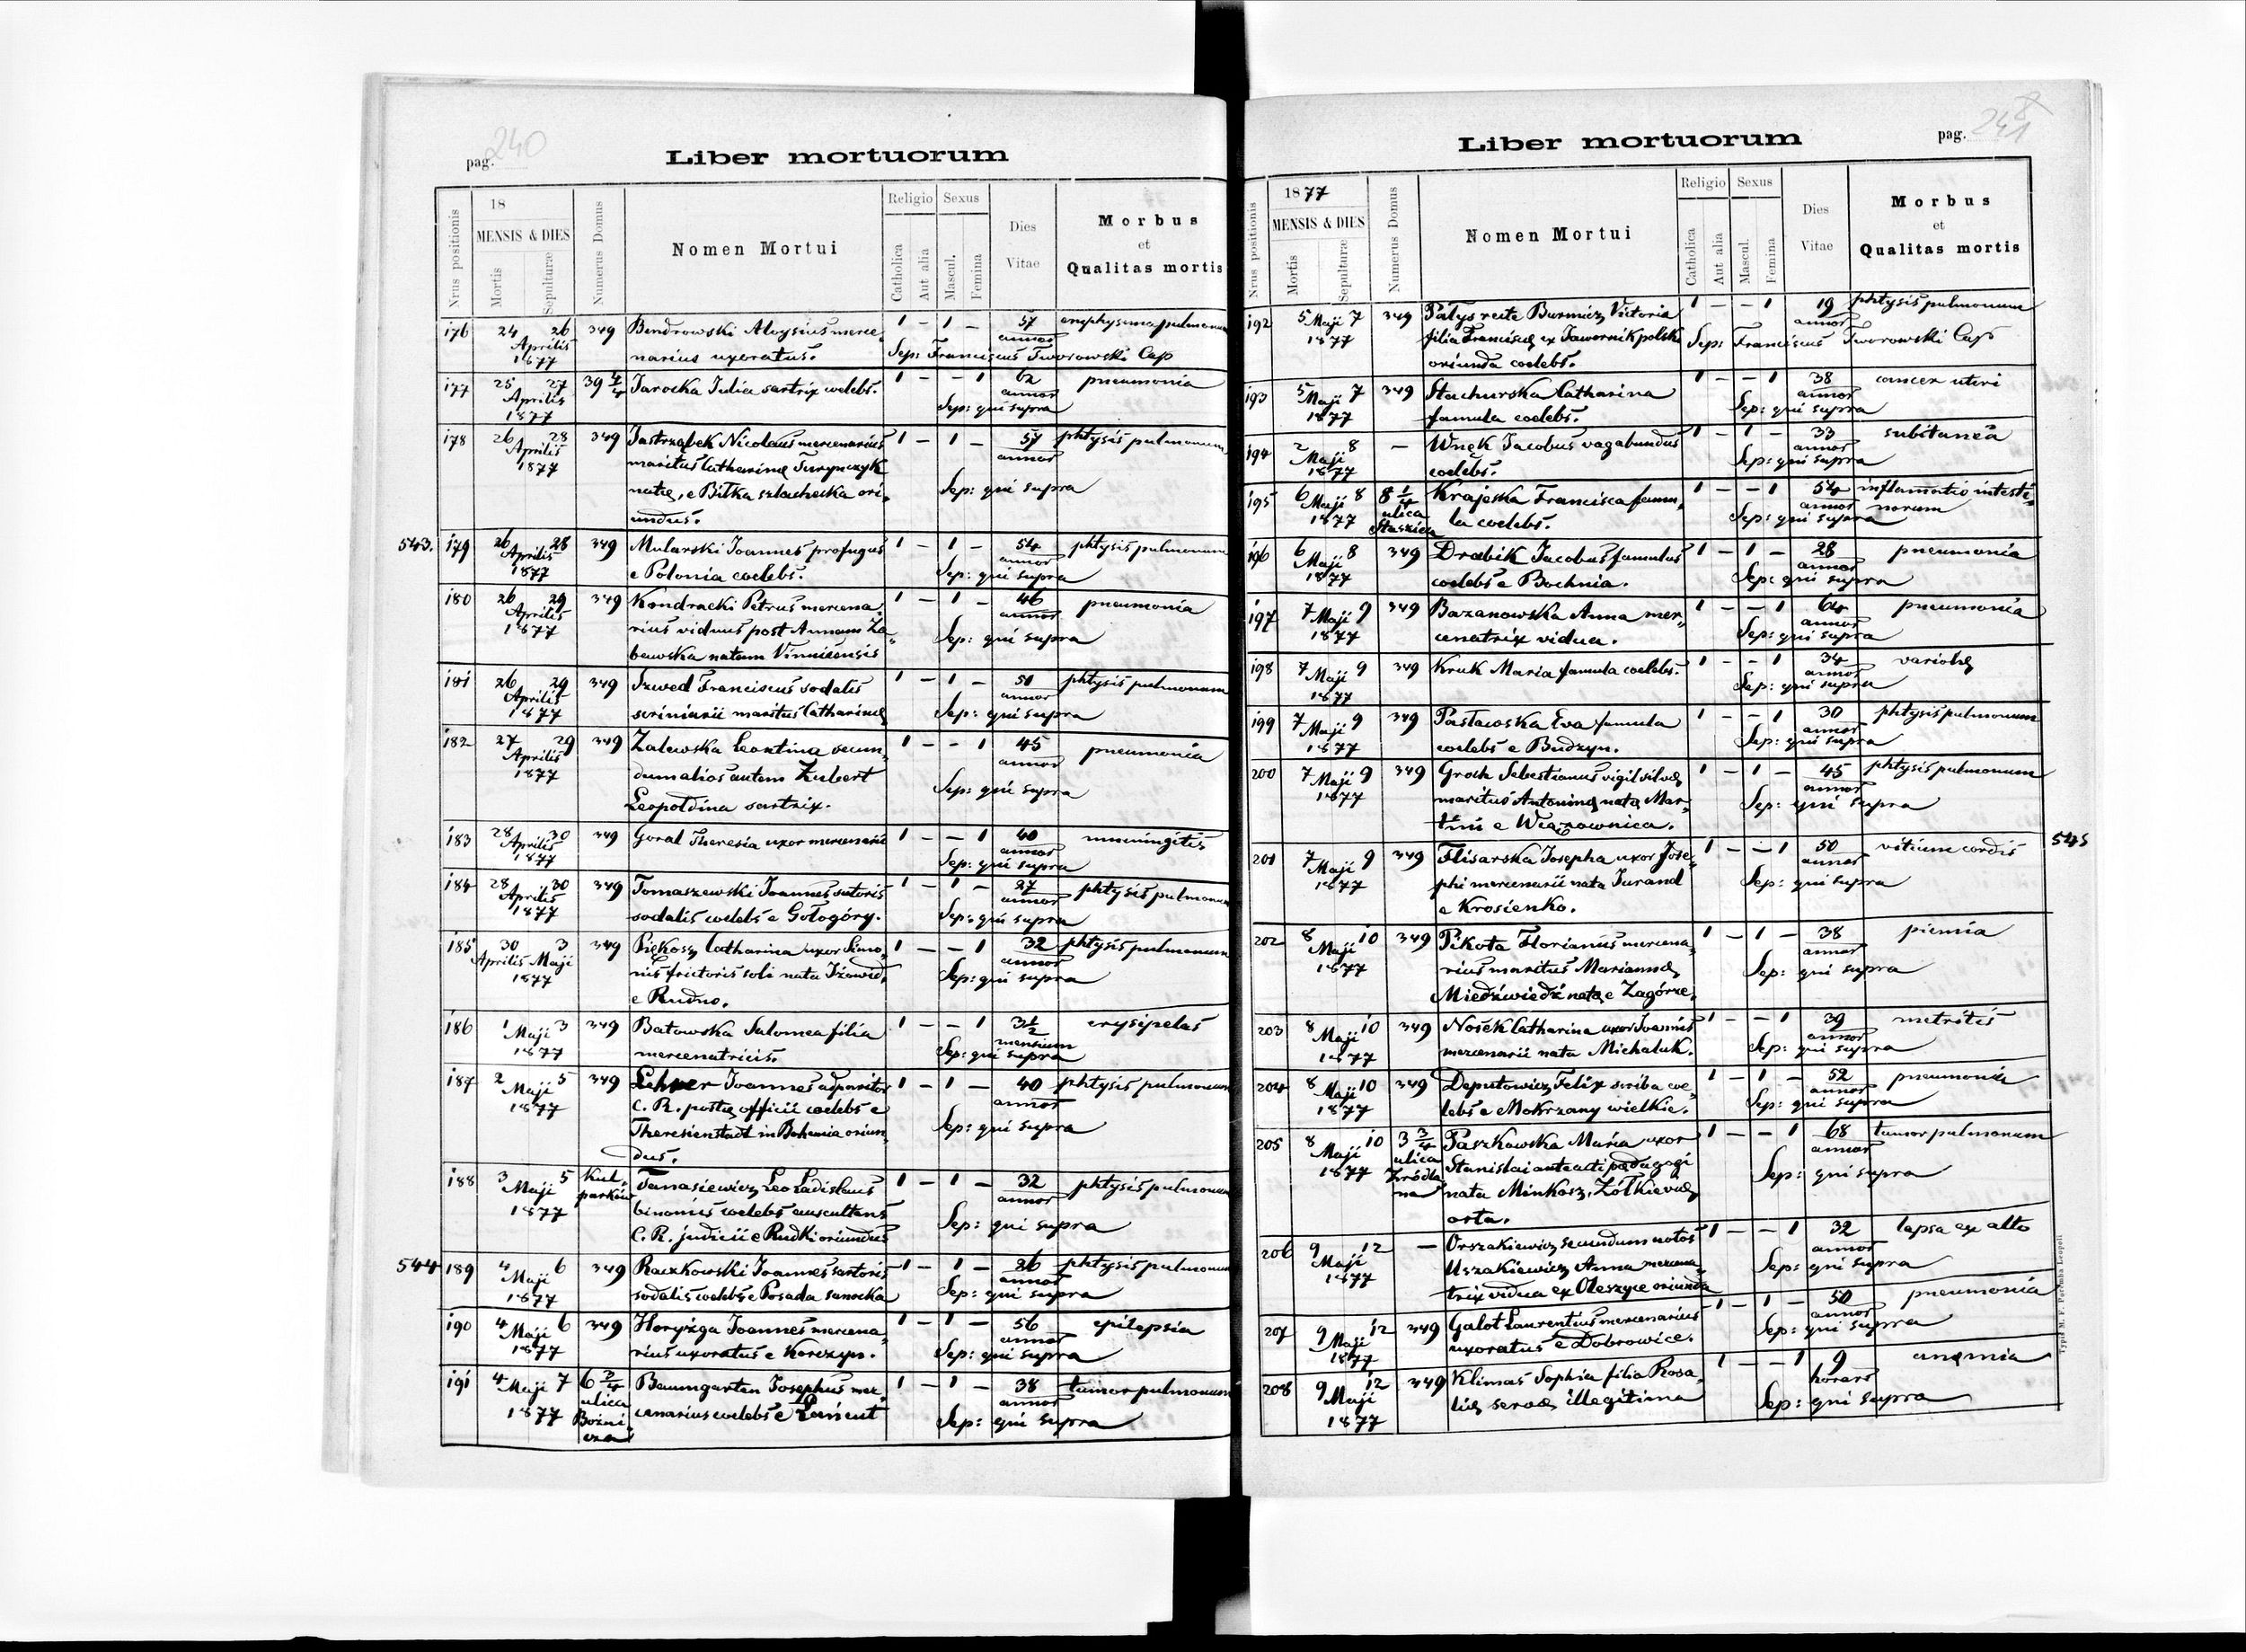 pag. 240
Liber mortuorum
Nrus positionis
18
MENSIS & DIES
Mortis
Sepulturæ
Numerus Domus
Nomen Mortui
Religio
Catholica
Aut alia
Sexus
Mascul.
Femina
Dies
Vitae
Morbus
et
Qualitas mortis
176 24 26 349 Bendrowski Aloysius merce 1 - 1 - 57 emphysema pulmonum
Aprilis narius uxoratus. annor
1877 Sep: Franciscus Tworowski Cap
177 25 27 39 4/4 Jarocka Julia sartrix coelebs. 1 - - 1 62 pneumonia
Aprilis annor
1877 Sep: qui supra
178 26 28 349 Jastrząbek Nicolaus mercenarius 1 - 1 - 57 phtysis pulmonum
Aprilis maritus Catharinę Turynczyk annor
1877 natę, e Biłka szlachecka ori„ Sep: qui supra
undus.
543. 179 26 28 349 Mularski Joannes profugus 1 - 1 - 54 phtysis pulmonum
Aprilis e Polonia coelebs. annor
1877 Sep: qui supra
180 26 29 349 Kondracki Petrus mercena„ 1 - 1 - 46 pneumonia
Aprilis rius viduus post Annam Za„ annor
1877 bawska natam Vinnicensis Sep: qui supra
181 26 29 349 Szwed Franciscus sodalis 1 - 1 - 51 phtysis pulmonum
Aprilis scriniarii maritus Catharinę annor
1877 Sep: qui supra
182 27 29 349 Zalewska Leontina secun„ 1 - - 1 45 pneumonia
Aprilis dum alios autem Zubert annor
1877 Leopoldina sartrix. Sep: qui supra
183 28 30 349 Goral Theresia uxor mercenarii 1 - - 1 40 meningitis
Aprilis annor
1877 Sep: qui supra
184 28 30 349 Tomaszewski Joannes sutoris 1 - 1 - 27 phtysis pulmonum
Aprilis sodalis coelebs e Gołogóry. annor
1877 Sep: qui supra
185 30 3 349 Piękosz Catharina uxor Simo„ 1 - - 1 32 phtysis pulmonum
Aprilis Maji nis frictoris soli nata annor
1877 e Rudno. Sep: qui supra
186 1 Maji 3 349 Batowska Salomea filia 1 - - 1 3 1/2 erysipelas
1877 mercenatricis. mensium
Sep: qui supra
187 2 Maji 5 349 Lehner Joannes adparitor 1 - 1 - 40 phtysis pulmonum
1877 C. R. postę officii coelebs e annor
Theresienstadt in Bohemia oriun„ Sep: qui supra
dus.
188 3 Maji 5 Kul„ Tanasiewicz Leo Ladislaus 1 - 1 - 32 phtysis pulmonum
1877 parków binomis coelebs auscultans annor
C. R. judicii e Rudki oriundus Sep: qui supra
544 189 4 Maji 6 349 Raczkowski Joannes sartoris 1 - 1 - 26 phtysis pulmonum
1877 sodalis coelebs e Posada sanocka annor
Sep: qui supra
190 4 Maji 6 349 Horyżga Joannes mercena„ 1 - 1 - 56 epilepsia
1877 rius uxoratus e Korczyn. annor
Sep: qui supra
191 4 Maji 7 6 2/4 Baumgarten Josephus mer„ 1 - 1 - 38 tumor pulmonum
1877 ulica cenarius coelebs e Łańcut annor
Bożni Sep: qui supra
cza
Liber mortuorum
pag. 241
Nrus positionis
1877
MENSIS & DIES
Mortis
Sepulturæ
Numerus Domus
Nomen Mortui
Religio
Catholica
Aut alia
Sexus
Mascul.
Femina
Dies
Vitae
Morbus
et
Qualitas mortis
192 5 Maji 7 349 Patys recte Burmicz Victoria 1 - - 1 19 phtysis pulmonum
1877 filia Franciscę ex Jawornik polski annor
oriunda coelebs. Sep: Franciscus Tworowski Cap
193 5 Maji 7 349 Stachurska Catharina 1 - - 1 38 cancer uteri
1877 famula coelebs. annor
Sep: qui supra
194 2 Maji 8 - Wnęk Jacobus vagabundus 1 - 1 - 33 subitanea
1877 coelebs. annor
Sep: qui supra
195 6 Maji 8 8 1/4 Krajeska Francisca famu„ 1 - - 1 54 inflamatio intesti„
1877 ulica la coelebs. annor norum
Staszica Sep: qui supra
196 6 Maji 8 349 Drabik Jacobus famulus 1 - 1 - 28 pneumonia
1877 coelebs e Bochnia. annor
Sep: qui supra
197 7 Maji 9 349 Bazanowska Anna mer„ 1 - - 1 64 pneumonia
1877 cenatrix vidua. annor
Sep: qui supra
198 7 Maji 9 349 Kruk Maria famula coelebs. 1 - - 1 34 variolę
1877 annor
Sep: qui supra
199 7 Maji 9 349 Pasławska Eva famula 1 - - 1 30 phtysis pulmonum
1877 coelebs e Budzyn. annor
Sep: qui supra
200 7 Maji 9 349 Groch Sebastianus vigil silvę 1 - 1 - 45 phtysis pulmonum
1877 maritus Antoninę natę Mar„ annor
tini e Wiązownica. Sep: qui supra
201 7 Maji 9 349 Flisarska Josepha uxor Jose„ 1 - - 1 50 vitium cordis 545
1877 phi mercenarii nata Jurand annor
e Krosienko. Sep: qui supra
202 8 Maji 10 349 Pikota Florianus mercena„ 1 - 1 - 38 piemia
1877 rius maritus Mariannę annor
Miedźwiedź natę e Zagórze. Sep: qui supra
203 8 Maji 10 349 Nosek Catharina uxor Joannis 1 - - 1 39 metritis
1877 mercenarii nata Michaluk. annor
Sep: qui supra
204 8 Maji 10 349 Deputowicz Felix scriba coe„ 1 - 1 - 52 pneumonia
1877 lebs e Mokrzany wielkie. annor
Sep: qui supra
205 8 Maji 10 3 3/4 Paszkowska Maria uxor 1 - - 1 68 tumor pulmonum
1877 ulica Stanislai anteacti pędagogi annor
Zródla nata Minkosz, Żółkievię Sep: qui supra
na orta.
206 9 Maji 12 - Orszakiewicz secundum notos 1 - - 1 32 lapsa ex alto
1877 Uszakiewicz Anna mercena„ annor
trix vidua ex Oleszyce oriunda Sep: qui supra
207 9 Maji 12 349 Galot Laurentius mercenarius 1 - 1 - 50 pneumonia
1877 uxoratus e Dobrowice. annor
Sep: qui supra
208 9 Maji 12 349 Klimas Sophia filia Rosa„ 1 - - 1 9 anęmia
1877 lię servę illegitima horarr
Sep: qui supra
Typis M. F. Poremba Leopoli